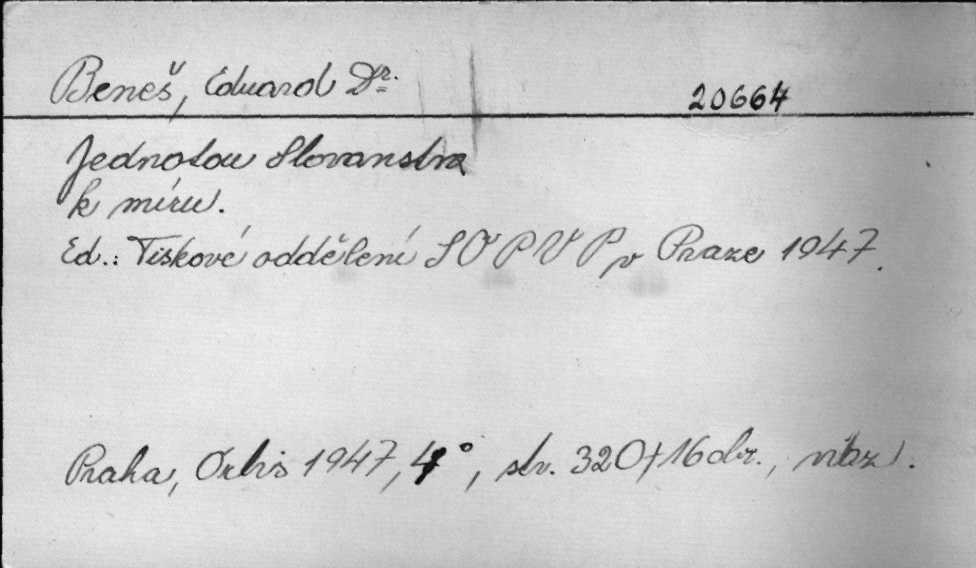 Beneš, Eduard Dr.
20664
Jednotou Slovanstva
k míru.
Ed.: Tiskové oddělení SVPVP v Praze 1947.
Praha, Orbis 1947, 4°, str. 320+16obr., váz.